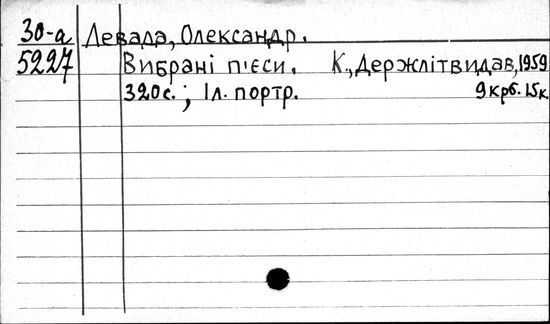 30-а Левада, Олександр.
5227 Вибрані п'єси. К., Держлітвидав, 1959
320с.; Іл. портр. 9 крб. 15 к.